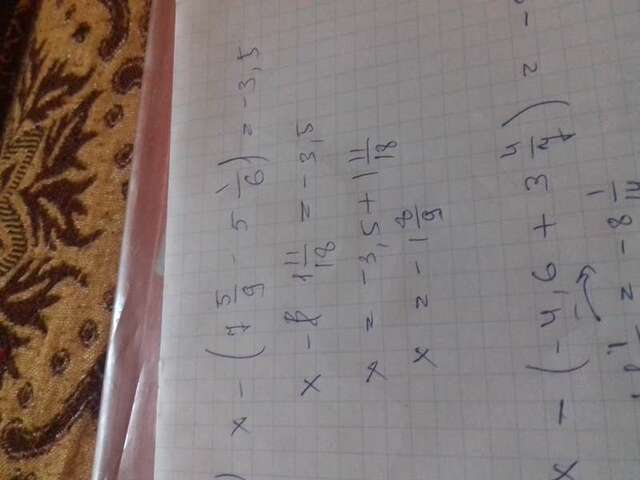 ) x - (7 5/9 - 5 1/6) = -3,5
x - 1 11/18 = -3,5
x = -3,5 + 1 11/18
x = -1 8/9
x - (-4,6 + 3 4/7) = -
= -8 1/14